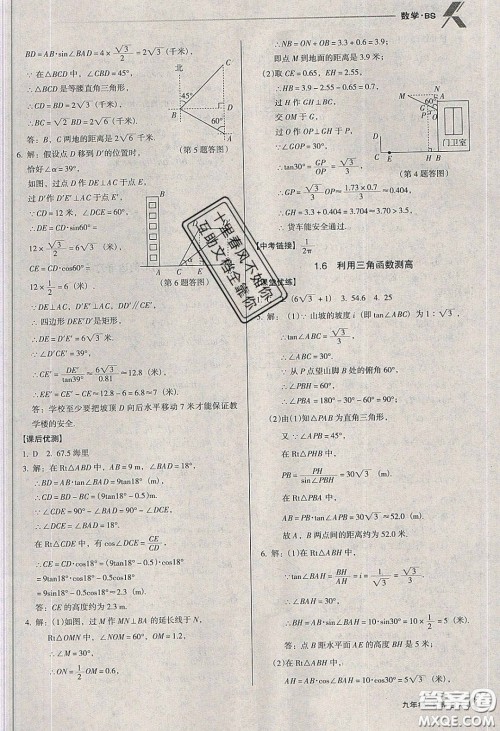 数学·BS
BD=AB·sin∠BAD=4×√3/2=2√3(千米),
∵在△BCD中,∠CBD=45°,
∴△BCD是等腰直角三角形,
∴CD=BD=2√3(千米),
∴BC=√2 BD=2√6(千米).
答:B,C两地的距离是2√6千米.
北
45°
60°
A
B
C
D
(第5题答图)
6. 解:假设点D移到D′的位置时,
恰好∠α=39°,
如图,过点D作DE⊥AC于点E,
过D′作D′E′⊥AC于点E′,
∵CD=12米,∠DCE=60°,
∴DE=CD·sin60°=
12×√3/2=6√3(米),
CE=CD·cos60°=
12×1/2=6(米).
(第6题答图)
∵DE⊥AC,D′E′⊥AC,
∴四边形DEE′D′是矩形,
∴DE=D′E′=6√3米,
∵∠D′CE′=39°,
∴CE′=D′E′/tan39°≈6√3/0.81≈12.8(米),
∴EE′=CE′-CE=12.8-6≈7(米).
答:学校至少要把坡顶D向后水平移动7米才能保证教
学楼的安全.
【课后优测】
1. D 2. 67.5海里
3. 解:在Rt△ABD中,AB=9 m,∠BAD=18°,
∴BD=AB·tan∠BAD=9tan18°,
∴CD=BD-BC=(9tan18°-0.5)m,
∵∠CDE=90°-∠BAD,∠DCE=90°-∠CDE,
∴∠DCE=∠BAD=18°,
在Rt△CDE中,有cos∠DCE=CE/CD,
∴CE=CD·cos∠DCE=(9tan18°-0.5)·cos18°
=9tan18°·cos18°-0.5·cos18°
=9sin18°-0.5cos18°≈2.3.
答:CE的高度约为2.3 m.
4. 解:(1)如图,过M作MN⊥BA的延长线于N,
在Rt△OMN中,∠NOM=60°,OM=1.2,
∴∠M=30°,
∴ON=1/2 OM=0.6,
∴NB=ON+OB=3.3+0.6=3.9;
即点M到地面的距离是3.9米;
(2)取CE=0.65,EH=2.55,
∴HB=3.9-2.55-0.65=0.7,
过H作GH⊥BC,
交OM于G,
过O作OP⊥GH于P,
∵∠GOP=30°,
∴tan30°=GP/OP=√3/3,
∴GP=√3/3 OP≈1.73×0.7/3≈0.404,
∴GH=3.3+0.404=3.704≈3.70>3.5,
货车能安全通过.
门卫室
(第4题答图)
【中考链接】1/2π
1.6 利用三角函数测高
【课堂优练】
(6√3+1) 3. 54.6 4. 25
5. 解:(1)∵山坡的坡度i(即tan∠ABC)=1:√3,
∴tan∠ABC=√3/3,
∴∠ABC=30°,
∵从P点望山脚B处的俯角60°,
∴∠PBH=60°,
∴∠ABP=180°-30°-60°=90°;
(2)由(1)知△PAB为直角三角形,
又∵∠APB=45°,
在Rt△PHB中,
PB=PH/sin∠PBH=30√3,
在Rt△PBA中,
AB=PB·tan∠BPA=30√3≈52.0(m).
故A,B两点间的距离约为52.0米.
6. 解:(1)在Rt△ABH中,
∵tan∠BAH=BH/AH=i=1/√3=√3/3,
∴∠BAH=30°,
∴BH=AB·sin∠BAH=10·sin30°=10×1/2=5(米).
答:点B距水平面AE的高度BH是5米;
(2)在Rt△ABH中,
AH=AB·cos∠BAH=10·cos30°=5√3(米),
十里春风不如你
互助文档全靠你
九年
答案圈
MXQE.COM